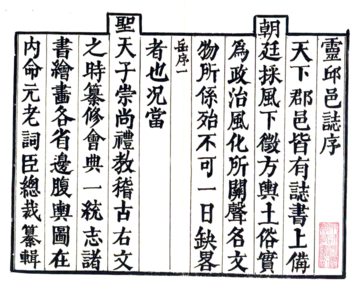 靈邱邑誌序
天下郡邑皆有誌書上備
朝廷採風下徵方輿土俗實
為政治風化所關聲名文
物所係殆不可一日缺畧
岳序一
者也况當
聖天子崇尚禮教稽古右文
之時纂修會典一統志諸
書繪畵各省邊腹輿圖在
内命元老詞臣總裁纂輯